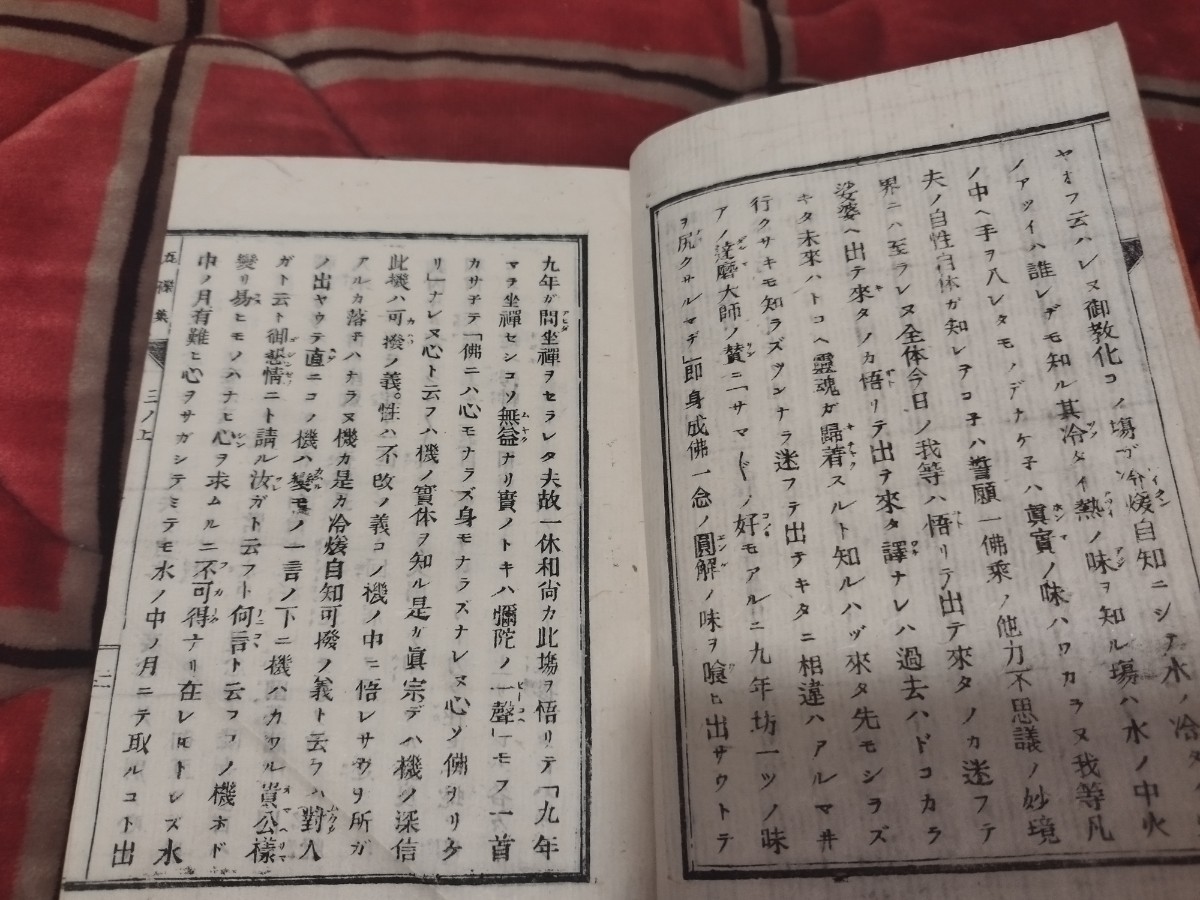 ヤオフ云ハレヌ御教化コノ塲ヅ冷煖自知ニシテ水ノ冷
ノアツイハ誰レデモ知ル其冷タイ熱ノ味ヲ知ル塲ハ水ノ中火
ノ中ヘ手ヲ入レタモノデナケ子ハ眞實ノ味ハワカラヌ我等凡
夫ノ自性自体ガ知レヲコ子ハ誓願一佛乘ノ他力不思議ノ妙境
界ニハ至ラレヌ全体今日ノ我等ハ悟リテ出テ來タノカ迷フテ
娑婆ヘ出テ來タノカ悟リテ出テ來タ譯ナレハ過去ハドコカラ
キタ未來ハトコヘ靈魂ガ歸着スルト知ルハヅ來タ先モシラズ
行クサキモ知ラズツンナラ迷フテ出テキタニ相違ハアルマ井
アノ達磨大師ノ賛ニ「サマ〴〵ノ好モアルニ九年坊一ツノ味
ヲ尻クサルマデ」即身成佛一念ノ圓解ノ味ヲ喰ヒ出サウトテ
九年ガ間坐禪ヲセラレタ夫故一休和尚カ此塲ヲ悟リテ「九年
マヲ坐禪センコソ無益ナリ實ノトキハ彌陀ノ一聲」モフ一首
カサ子テ「佛ニハ心モナラズ身モナラズナレヌ心ゾ佛ヲリケ
リ」ナレヌ心ト云フハ機ノ實体ヲ知ル是ガ眞宗デハ機ノ深信
此機ハ可撥ノ義。性ハ不改ノ義コノ機ノ中ニ悟レサウリ所ガ
アルカ落チハナラヌ機カ是カ冷煖自知可撥ノ義ト云フハ對人
ノ出ヤウテ直ニコノ機ハ變モノ一言ノ下ニ機ハカワル貴公樣
ガト云ト御悲情ニト請ル汝ガト云フト何言ト云フフノ機ホド
變リ易ヒモノハナヒ心ヲ求ムルニ不可得ナリ在レ𪜈トレズ水
中ノ月有難ヒ心ヲサガシテミテモ水ノ中ノ月ニテ取ルコト出
三ノ上
二